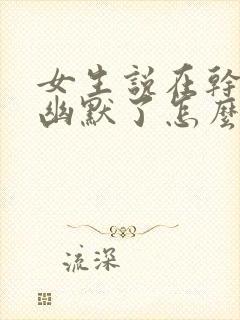 女生说在幹
幽默了怎麼
流深